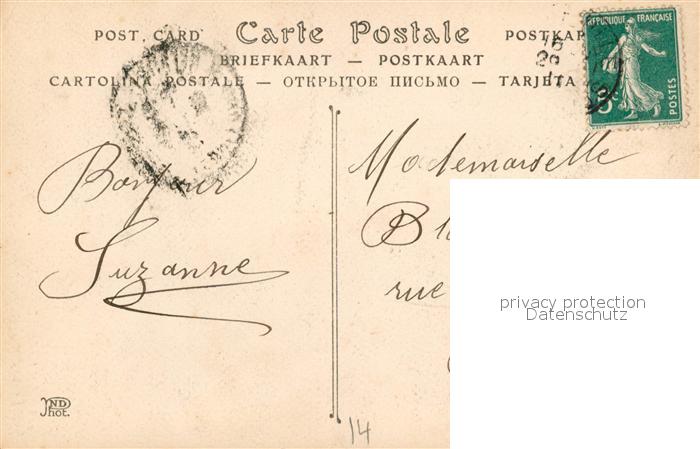 POST CARD Carte Postale POSTKAR
BRIEFKAART — POSTKAART
CARTOLINA POSTALE — ОТКРЫТОЕ ПИСЬМО — TARJETA
RÉPUBLIQUE FRANÇAISE
POSTES
Bonjour
Suzanne
Mademoiselle
rue
privacy protection
Datenschutz
ND
Phot.
14